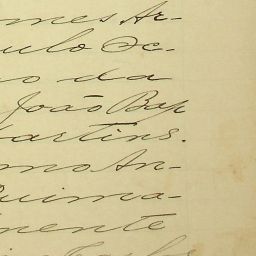 mes Ar-
ulo Oc-
o da
João Bap
artins.
mo An-
Quima-
mente